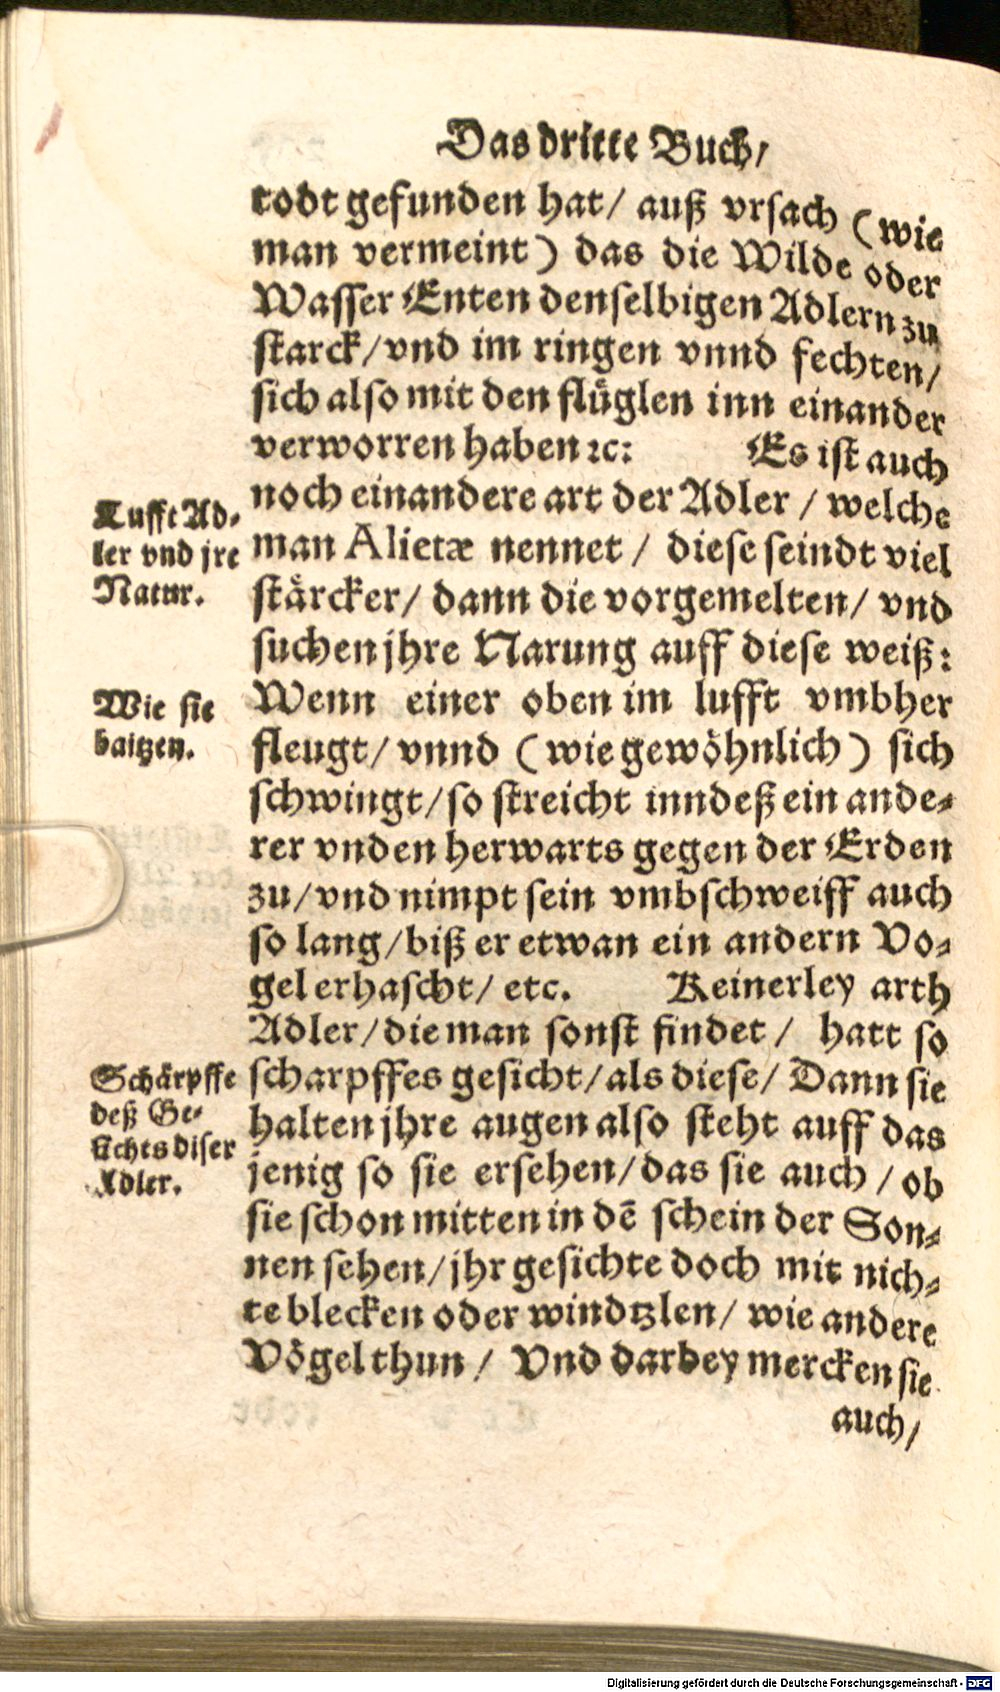 Das dritte Buch/
todt gefunden hat/ auß vrsach (wie
man vermeint) das die Wilde oder
Wasser Enten denselbigen Adlern zu
starck/vnd im ringen vnnd fechten/
sich also mit den flüglen inn einander
verworren haben ꝛc: Es ist auch
noch einandere art der Adler / welche
man Alietæ nennet / diese seindt viel
stärcker/ dann die vorgemelten/ vnd
suchen jhre Narung auff diese weiß:
Wenn einer oben im lufft vmbher
fleugt/ vnnd (wie gewöhnlich) sich
schwingt/so streicht inndeß ein ande⸗
rer vnden herwarts gegen der Erden
zu/vnd nimpt sein vmbschweiff auch
so lang/biß er etwan ein andern Vo⸗
gel erhascht/ etc. Keinerley arth
Adler/die man sonst findet/ hatt so
scharpffes gesicht/als diese/ Dann sie
halten jhre augen also steht auff das
jenig so sie ersehen/das sie auch / ob
sie schon mitten in dē schein der Son⸗
nen sehen/jhr gesichte doch mit nich⸗
te blecken oder windtzlen/ wie andere
Vögel thun / Vnd darbey mercken sie
auch/
Lufft Ad⸗
ler vnd jre
Natur.
Wie sie
baitzen.
Schärpffe
deß Ge⸗
sichts diser
Adler.
Digitalisierung gefördert durch die Deutsche Forschungsgemeinschaft - DFG